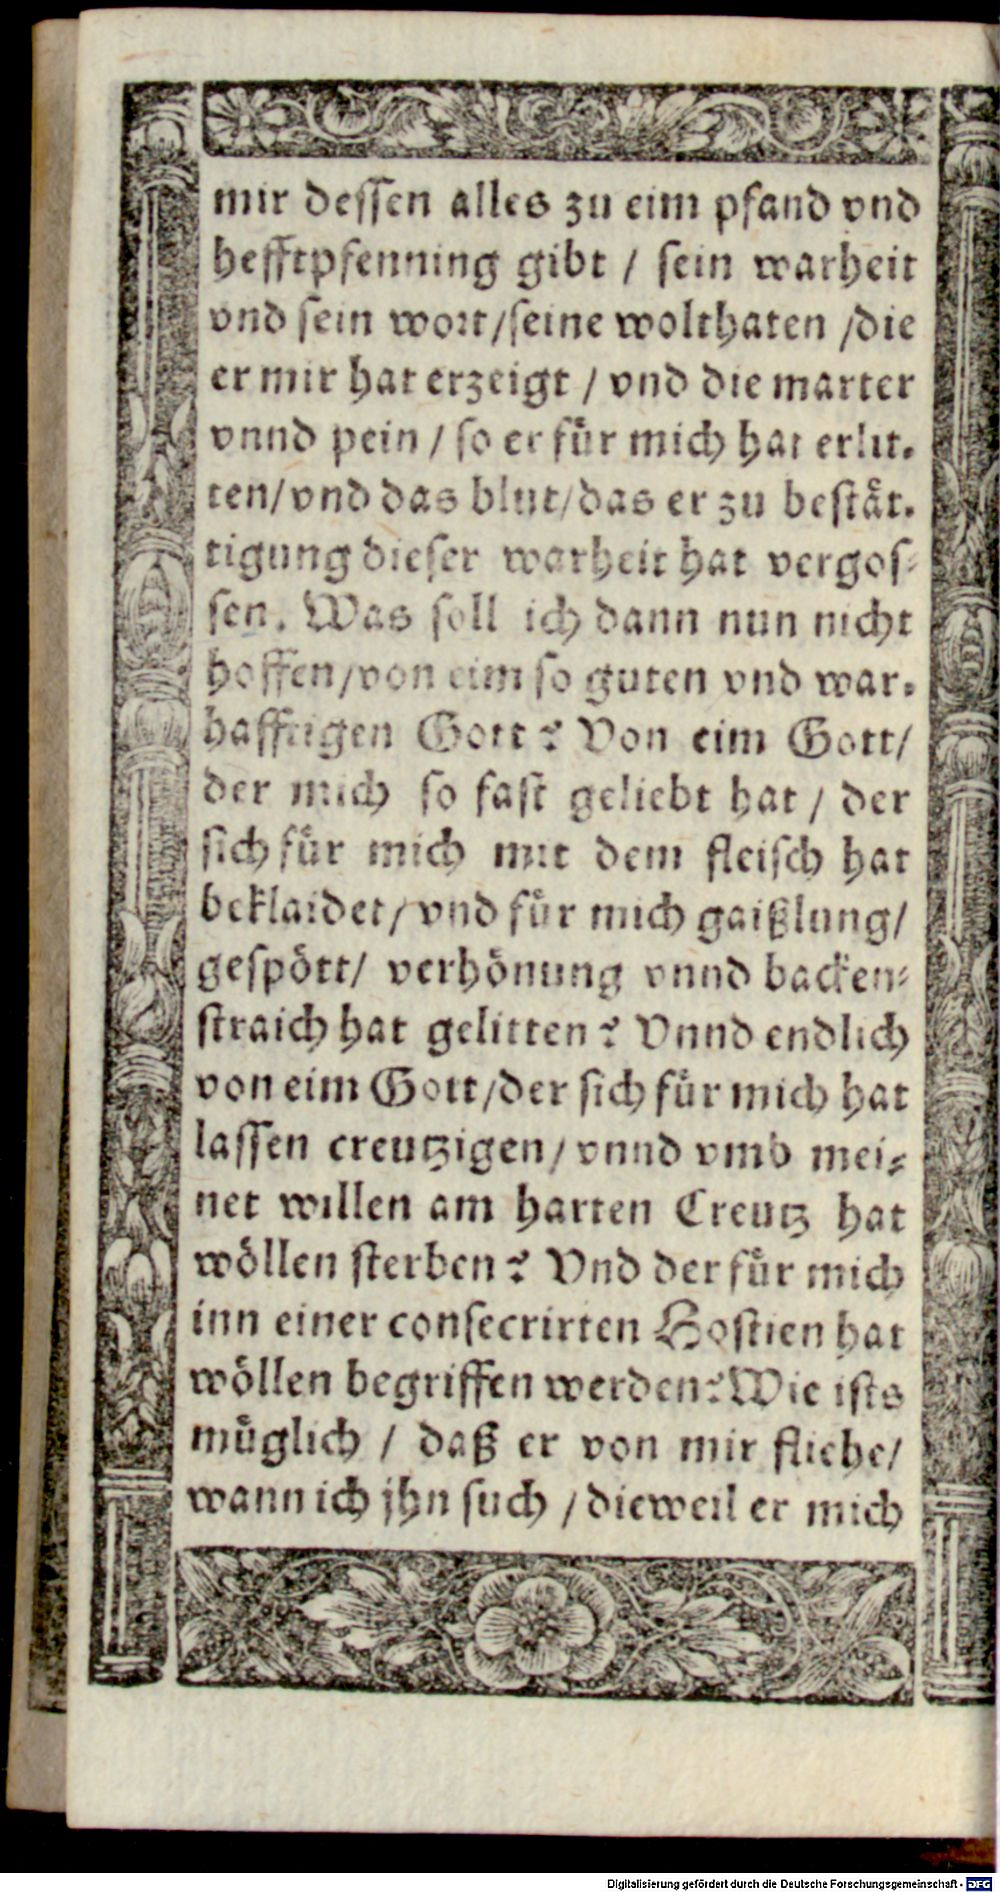 mir dessen alles zu eim pfand vnd
hefftpfenning gibt / sein warheit
vnd sein wort/seine wolthaten /die
er mir hat erzeigt / vnd die marter
vnnd pein / so er für mich hat erlit-
ten/vnd das blut/das er zu bestät-
tigung dieser warheit hat vergos-
sen. Was soll ich dann nun nicht
hoffen/von eim so guten vnd war-
hafftigen Gott? Von eim Gott/
der mich so fast geliebt hat / der
sich für mich mit dem fleisch hat
beklaidet/ vnd für mich gaißlung/
gespött/ verhönung vnnd backen-
straich hat gelitten? Vnnd endlich
von eim Gott/der sich für mich hat
lassen creutzigen/ vnnd vmb mei-
net willen am harten Creutz hat
wöllen sterben? Vnd der für mich
inn einer consecrirten Hostien hat
wöllen begriffen werden? Wie ists
müglich / daß er von mir fliehe/
wann ich jhn such / dieweil er mich
Digitalisierung gefördert durch die Deutsche Forschungsgemeinschaft - DFG